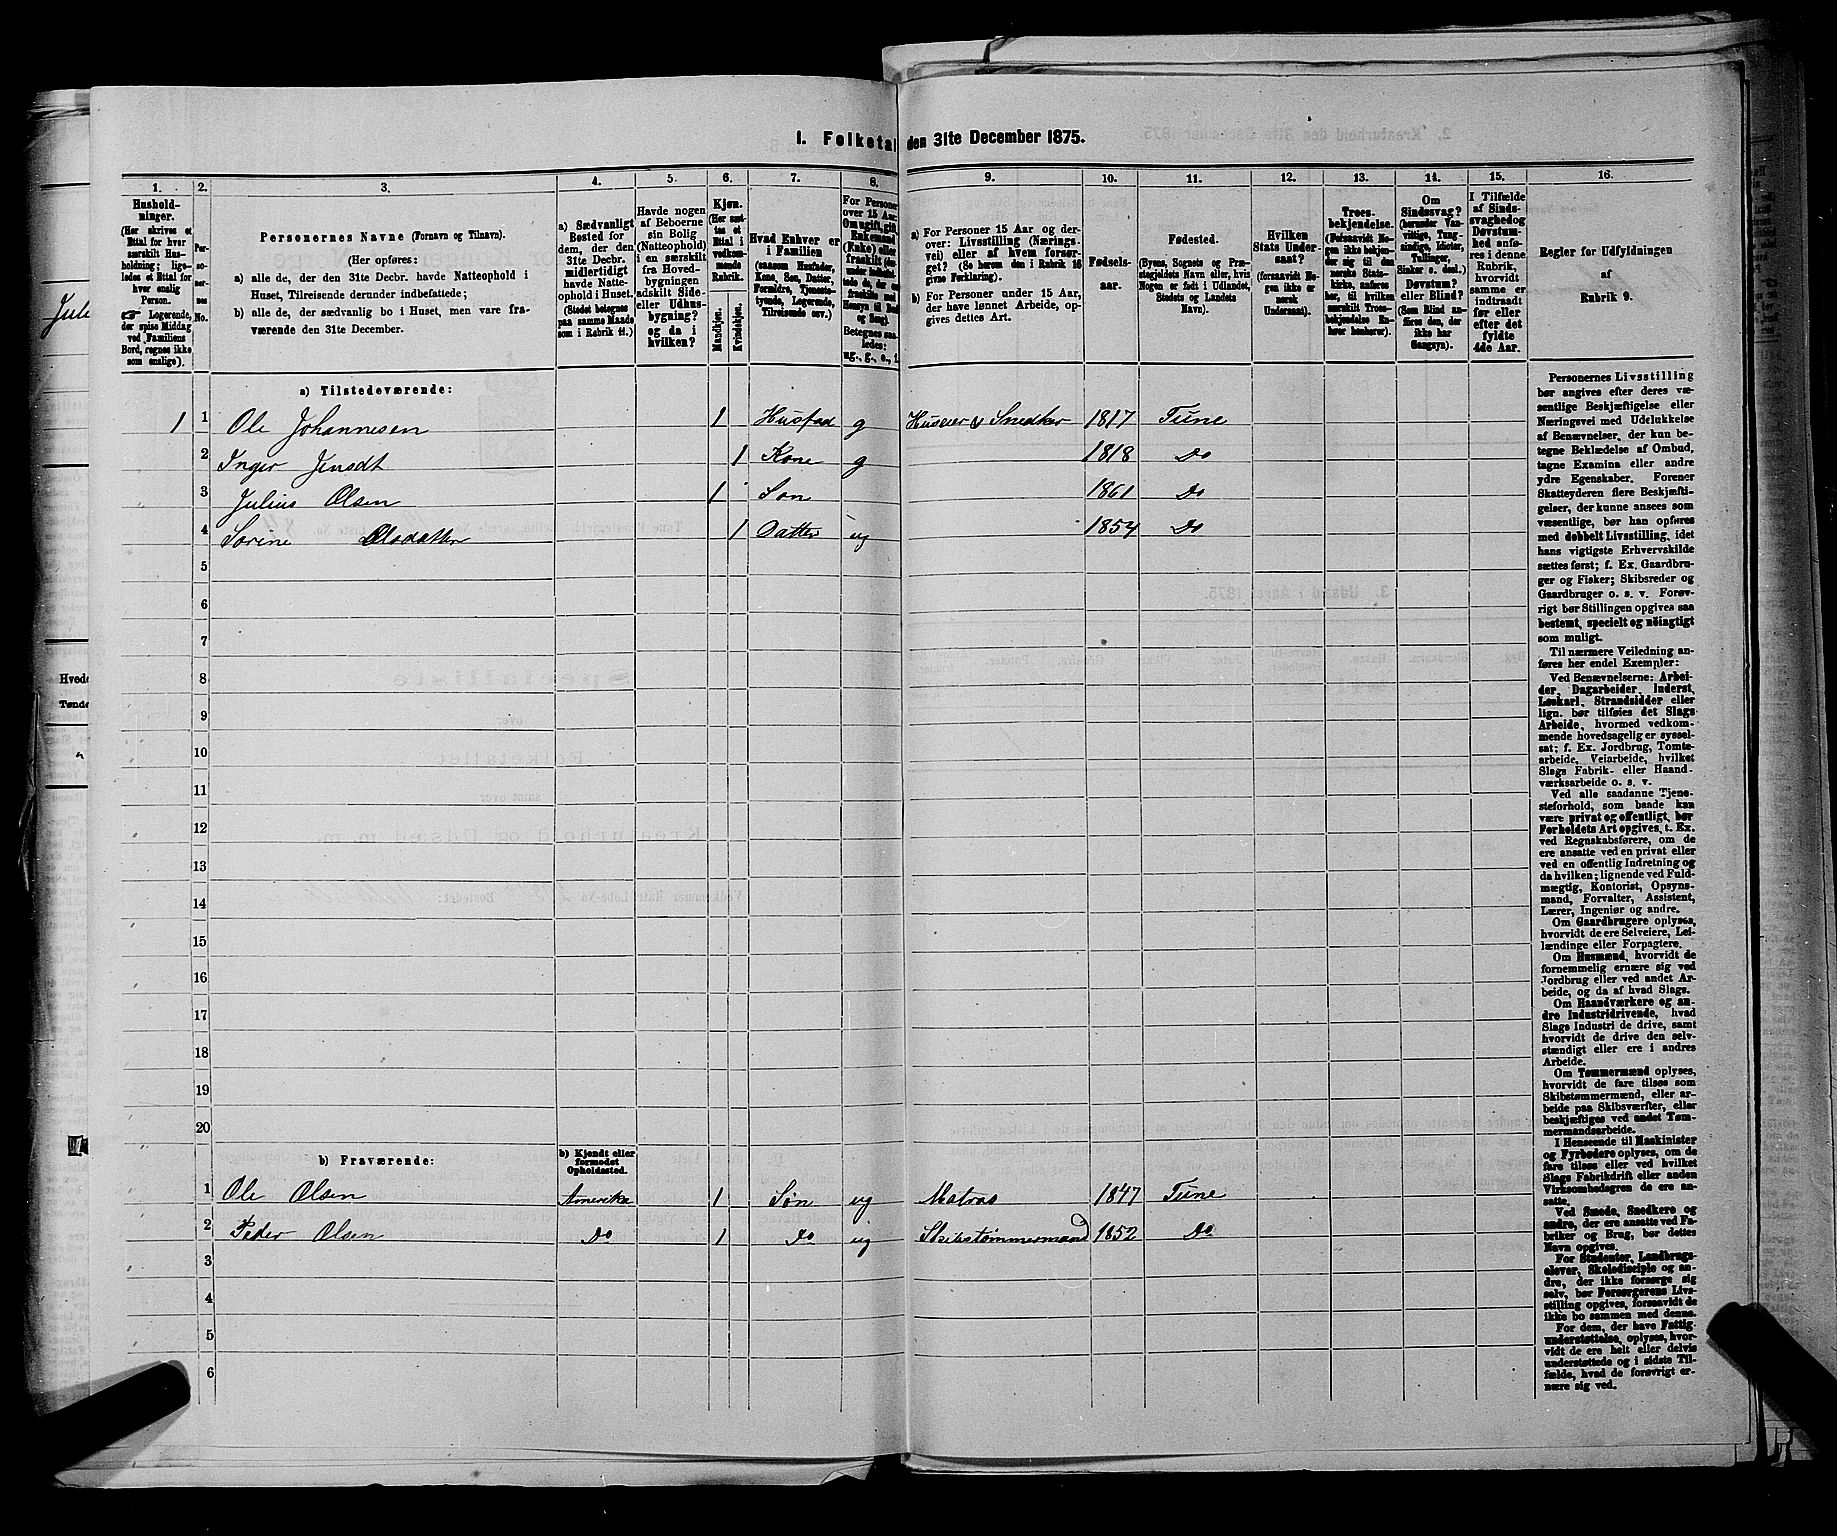 I. Folketal den 31te December 1875.
1. 2. 3. 4. 5. 6. 7. 8. 9. 10. 11. 12. 13. 14. 15. 16.
Hushold-
ninger.
(Her skrives et
Ettal for hver
særskilt Hus-
holdning; lige-
ledes et Ettal for
hver enslig
Person.
☞ Logerende,
der spise Middag
ved Familiens
Bord, regnes ikke
som enslige).
Per-
so-
ner-
nes
No.
Personernes Navne (Fornavn og Tilnavn).
(Her opføres:
a) alle de, der den 31te Decbr. havde Natteophold i
Huset, Tilreisende derunder indbefattede;
b) alle de, der sædvanlig bo i Huset, men vare fra-
værende den 31te December.
a) Sædvanligt
Bosted for
dem, der den
31te Decbr.
midlertidigt
havde Natte-
ophold i Huset.
(Stedet betegnes
paa samme Maade
som i Rubrik 11.)
Havde nogen
af Beboerne
sin Bolig
(Natteophold)
i en særskilt
fra Hoved-
bygningen
adskilt Side-
eller Udhus-
bygning?
og da i
hvilken?
Kjøn.
(Her sæt-
tes et
Ettal i
vedkom-
mende
Rubrik.
Mandkjøn.
Kvindekjøn.
Hvad Enhver er
i Familien
(saasom Husfader,
Kone, Søn, Datter,
Forældre, Tjeneste-
tyende, Logerende,
Tilreisende osv.)
For Personer
over 15 Aar:
Om ugift, gift,
Enkemand
(Enke) eller
fraskilt
Betegnes saa-
ledes:
ug., g., e., f.
a) For Personer 15 Aar og der-
over: Livsstilling (Nærings-
vei) eller af hvem forsør-
get? (Se herom den i Rubrik 16
givne Forklaring).
b) For Personer under 15 Aar,
der have lønnet Arbeide, op-
gives dettes Art.
Fødsels-
aar.
Fødested.
(Byens, Sognets og Præ-
stegjeldets Navn eller, hvis
Nogen er født i Udlandet,
Stedets og Landets
Navn).
Hvilken
Stats Under-
saat?
(forsaavidt No-
gen ikke er
norsk
Undersaat).
Troes-
bekjendelse.
(Forsaavidt No-
gen ikke bekjen-
der sig til den
norske Stats-
kirke, anføres
her, til hvilken
særskilt Troes-
bekjendelse En-
hver henhører).
Om
Sindssvag?
(herunder Van-
vittige, Tung-
sindige, Idioter,
Tullinger,
Sinker o. desl.)
Døvstum?
eller Blind?
(Som Blind an-
føres den, der
ikke har
Gangsyn).
I Tilfælde
af Sinds-
svaghed og
Døvstum-
hed anfø-
res i denne
Rubrik,
hvorvidt
samme er
indtraadt
før eller
efter det
fyldte
4de Aar.
Regler for Udfyldningen
af
Rubrik 9.
a) Tilstedeværende:
1 1 Ole Johannesen 1 Husfad g Huseier & Snedker 1817 Tune
2 Inger Jensdt 1 Kone g 1818 Do
3 Julius Olsen 1 Søn 1861 Do
4 Sorine Olsdatter 1 Datter ug 1854 Do
5
6
7
8
9
10
11
12
13
14
15
16
17
18
19
20
b) Fraværende:
b) Kjendt eller
formodet
Opholdssted.
1 Ole Olsen Amerika 1 Søn ug Matros 1847 Tune
2 Peder Olsen Do 1 Do ug Skibstømmermand 1852 Do
3
4
5
6
Personernes Livsstilling
bør angives efter deres væ-
sentlige Beskjæftigelse eller
Næringsvei med Udelukkelse
af Benævnelser, der kun be-
tegne Beklædelse af Ombud,
tagne Examina eller andre
ydre Egenskaber. Forener
Skatteyderen flere Beskjæfti-
gelser, der kunne ansees som
væsentlige, bør han opføres
med dobbelt Livsstilling, idet
hans vigtigste Erhvervskilde
sættes først; f. Ex. Gaardbru-
ger og Fisker; Skibsreder og
Gaardbruger o. s. v. Forøv-
rigt bør Stillingen opgives saa
bestemt, specielt og nöiagtigt
som muligt.
Til nærmere Veiledning an-
føres her endel Exempler:
Ved Benævnelserne: Arbei-
der, Dagarbeider, Inderst,
Løskarl, Strandsidder eller
lign. bør tilføies det Slags
Arbeide, hvormed vedkom-
mende hovedsagelig er syssel-
sat; f. Ex. Jordbrug, Tomte-
arbeide, Veiarbeide, hvilket
Slags Fabrik- eller Haand-
værksarbeide o. s. v.
Ved alle saadanne Tjene-
steforhold, som baade kan
være privat og offentligt, bør
Forholdets Art opgives, t. Ex.
ved Regnskabsførere, om de
ere ansatte ved en privat eller
ved en offentlig Indretning og
da hvilken; lignende ved Fuld-
mægtig, Kontorist, Opsyns-
mand, Forvalter, Assistent,
Lærer, Ingeniør og andre.
Om Gaardbrugere oplyses,
hvorvidt de ere Selveiere, Lei-
lændinge eller Forpagtere.
Om Husmænd, hvorvidt de
fornemmelig ernære sig ved
Jordbrug eller ved andet Ar-
beide, og da af hvad Slags.
Om Haandværkere og an-
dre Industridrivende, hvad
Slags Industri de drive, samt
hvorvidt de drive den selv-
stændigt eller ere i andres
Arbeide.
Om Tømmermænd oplyses,
hvorvidt de fare tilsøs som
Skibstømmermænd, eller ar-
beide paa Skibsværfter, eller
beskjæftiges ved andet Tøm-
mermandsarbeide.
I Henseende til Maskinister
og Fyrbødere oplyses, om de
fare tilsøs eller ved hvilket
Slags Fabrikdrift eller anden
Virksomhedsgren de ere an-
satte.
Ved Smede, Snedkere og
andre, der ere ansatte ved Fa-
briker og Brug, bør dettes
Navn opgives.
For Studenter, Landbrugs-
elever, Skoledisciple og an-
dre, der ikke forsørge sig
selv, bør Forsørgerens Livs-
stilling opgives, forsaavidt de
ikke bo sammen med denne.
For dem, der have Fattig-
understøttelse, oplyses, hvor-
vidt de ere helt eller delvis
understøttede og i sidste Til-
fælde, hvad de forøvrigt er-
nære sig ved.